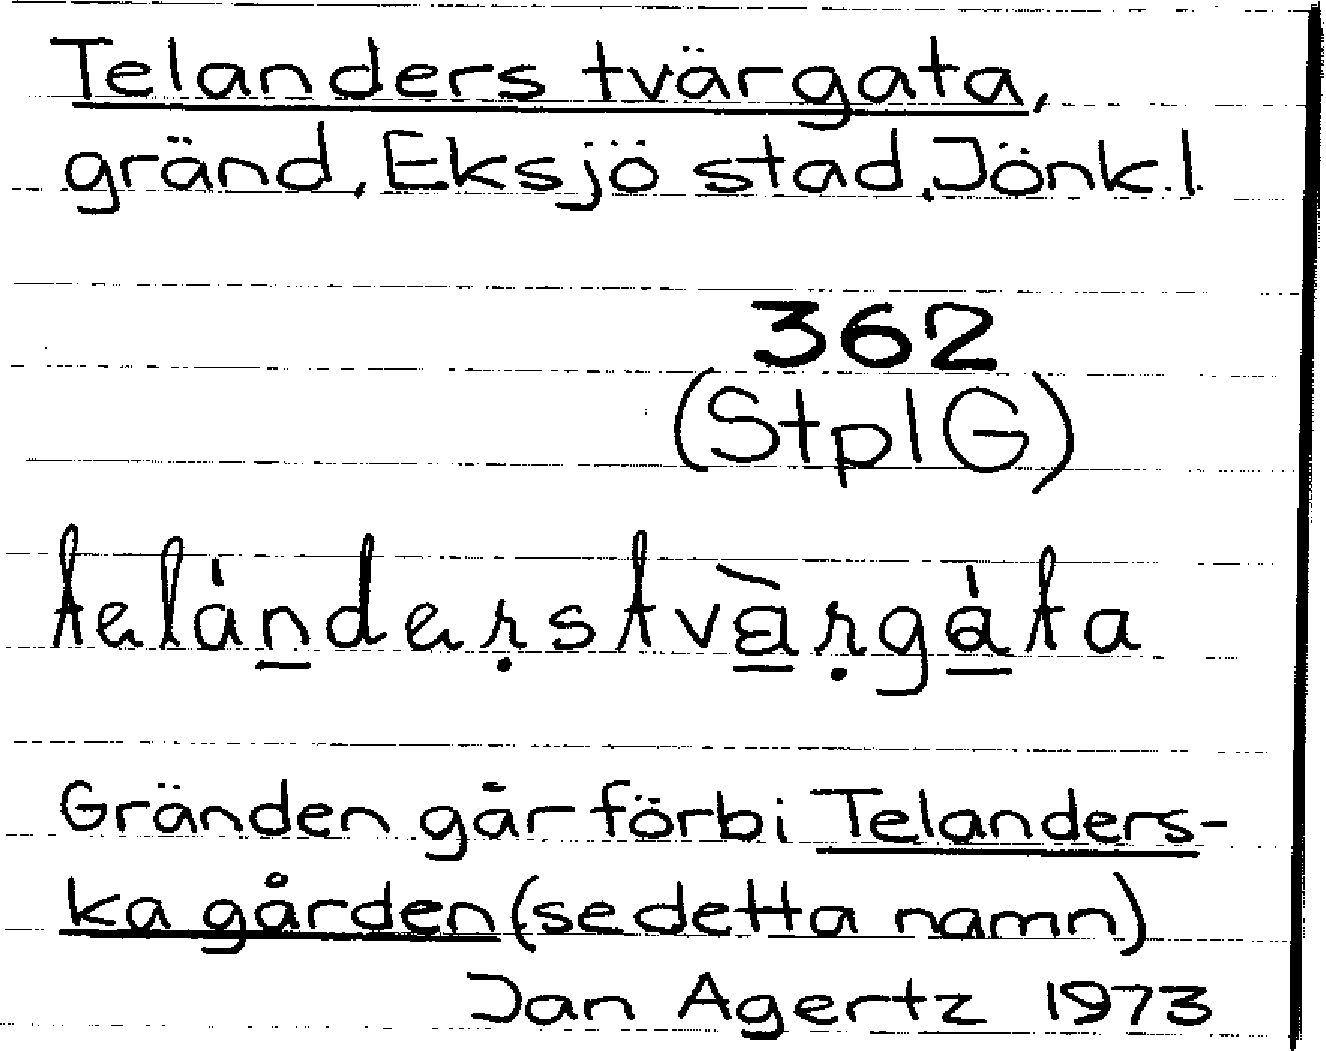 Telanders tvärgata,
gränd, Eksjö stad, Jönk.l.
362
(StplG)
telánderstvä̀rgàta
Gränden går förbi Telanders-
ka gården (se detta namn)
Jan Agertz 1973